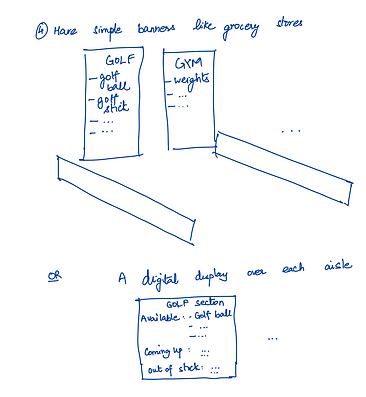 ④ Have simple banners like grocery stores
GOLF
- golf
ball
- golf
stick
- ...
- ...
GYM
- weights
- ...
- ...
...
OR A digital display over each aisle
GOLF section
Available : - Golf ball
- ...
- ...
Coming up : ...
out of stock : ...
...